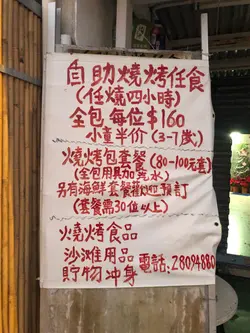 自助燒烤任食
(任燒四小時)
全包每位$160
小童半价(3-7歲)
燒烤包套餐(80-100元套)
(全包用具加汽水)
另有海鮮套餐 預訂
(套餐需30位以上)
燒烤食品
沙滩用品
貯物冲身 電話:28094880